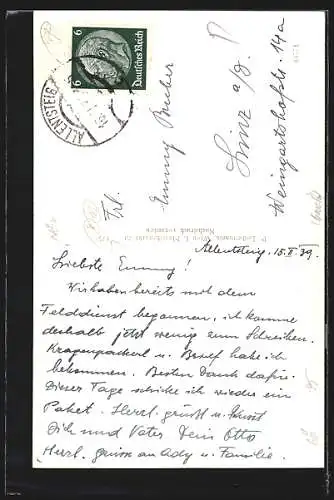 6
6
Deutsches Reich
ALLENTSTEIG
Frl.
Emmy
Linz a/D.
Weingartshofstr. 14a
P. Ledermann, Wien I.
Nachdruck verboten
Allentsteig, 15.II.39.
Liebste Emmy!
Wir haben bereits mit dem
Felddienst begonnen, ich komme
deshalb jetzt wenig zum Schreiben.
Kragenpackerl u. Brief habe ich
bekommen. Besten Dank dafür.
Dieser Tage schicke ich wieder ein
Paket. Herzl. grüßt u. küsst
Dich und Vater Dein Otto
Herzl. grüsse an Ady u. Familie.